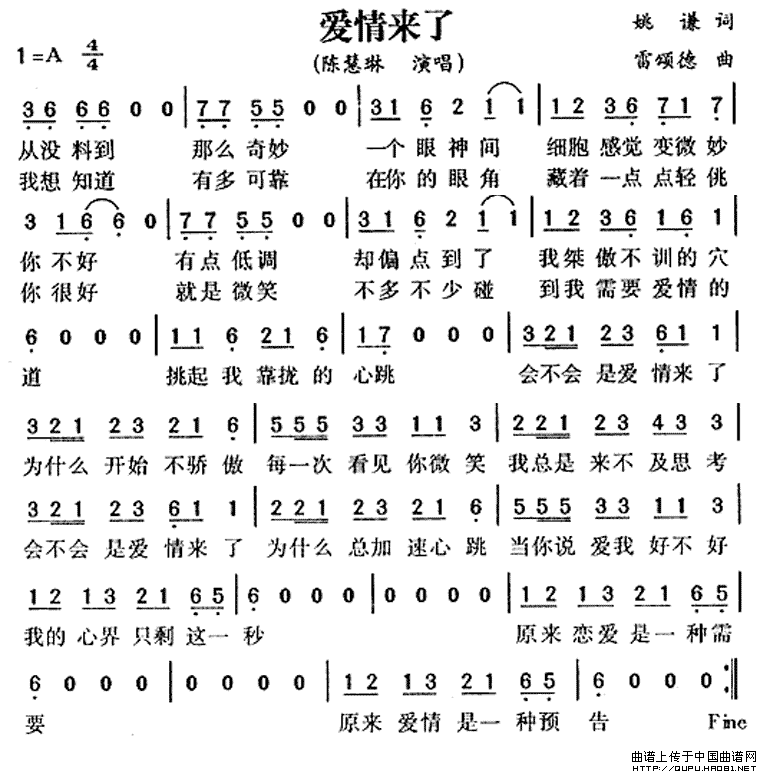 爱情来了
姚 谦 词
1=A 4/4 (陈慧琳 演唱) 雷颂德 曲
3 6 6 6 0 0 | 7 7 5 5 0 0 | 3 1 6 2 1 1 | 1 2 3 6 7 1 7
从没料到 那么奇妙 一个眼神间 细胞感觉变微妙
我想知道 有多可靠 在你的眼角 藏着一点点轻佻
3 1 6 6 0 | 7 7 5 5 0 0 | 3 1 6 2 1 1 | 1 2 3 6 1 6 1
你不好 有点低调 却偏点到了 我桀傲不训的穴
你很好 就是微笑 不多不少碰 到我需要爱情的
6 0 0 0 | 1 1 6 2 1 6 | 1 7 0 0 0 | 3 2 1 2 3 6 1 1
道 挑起我靠拢的心跳 会不会是爱情来了
3 2 1 2 3 2 1 6 | 5 5 5 3 3 1 1 3 | 2 2 1 2 3 4 3 3
为什么开始不骄傲 每一次看见你微笑 我总是来不及思考
3 2 1 2 3 6 1 1 | 2 2 1 2 3 2 1 6 | 5 5 5 3 3 1 1 3
会不会是爱情来了 为什么总加速心跳 当你说爱我好不好
1 2 1 3 2 1 6 5 | 6 0 0 0 | 0 0 0 0 | 1 2 1 3 2 1 6 5
我的心界只剩这一秒 原来恋爱是一种需
6 0 0 0 | 0 0 0 0 | 1 2 1 3 2 1 6 5 | 6 0 0 0 :||
要 原来爱情是一种预告 Fine
曲谱上传于中国曲谱网
HTTP://QUPU.HAO81.NET